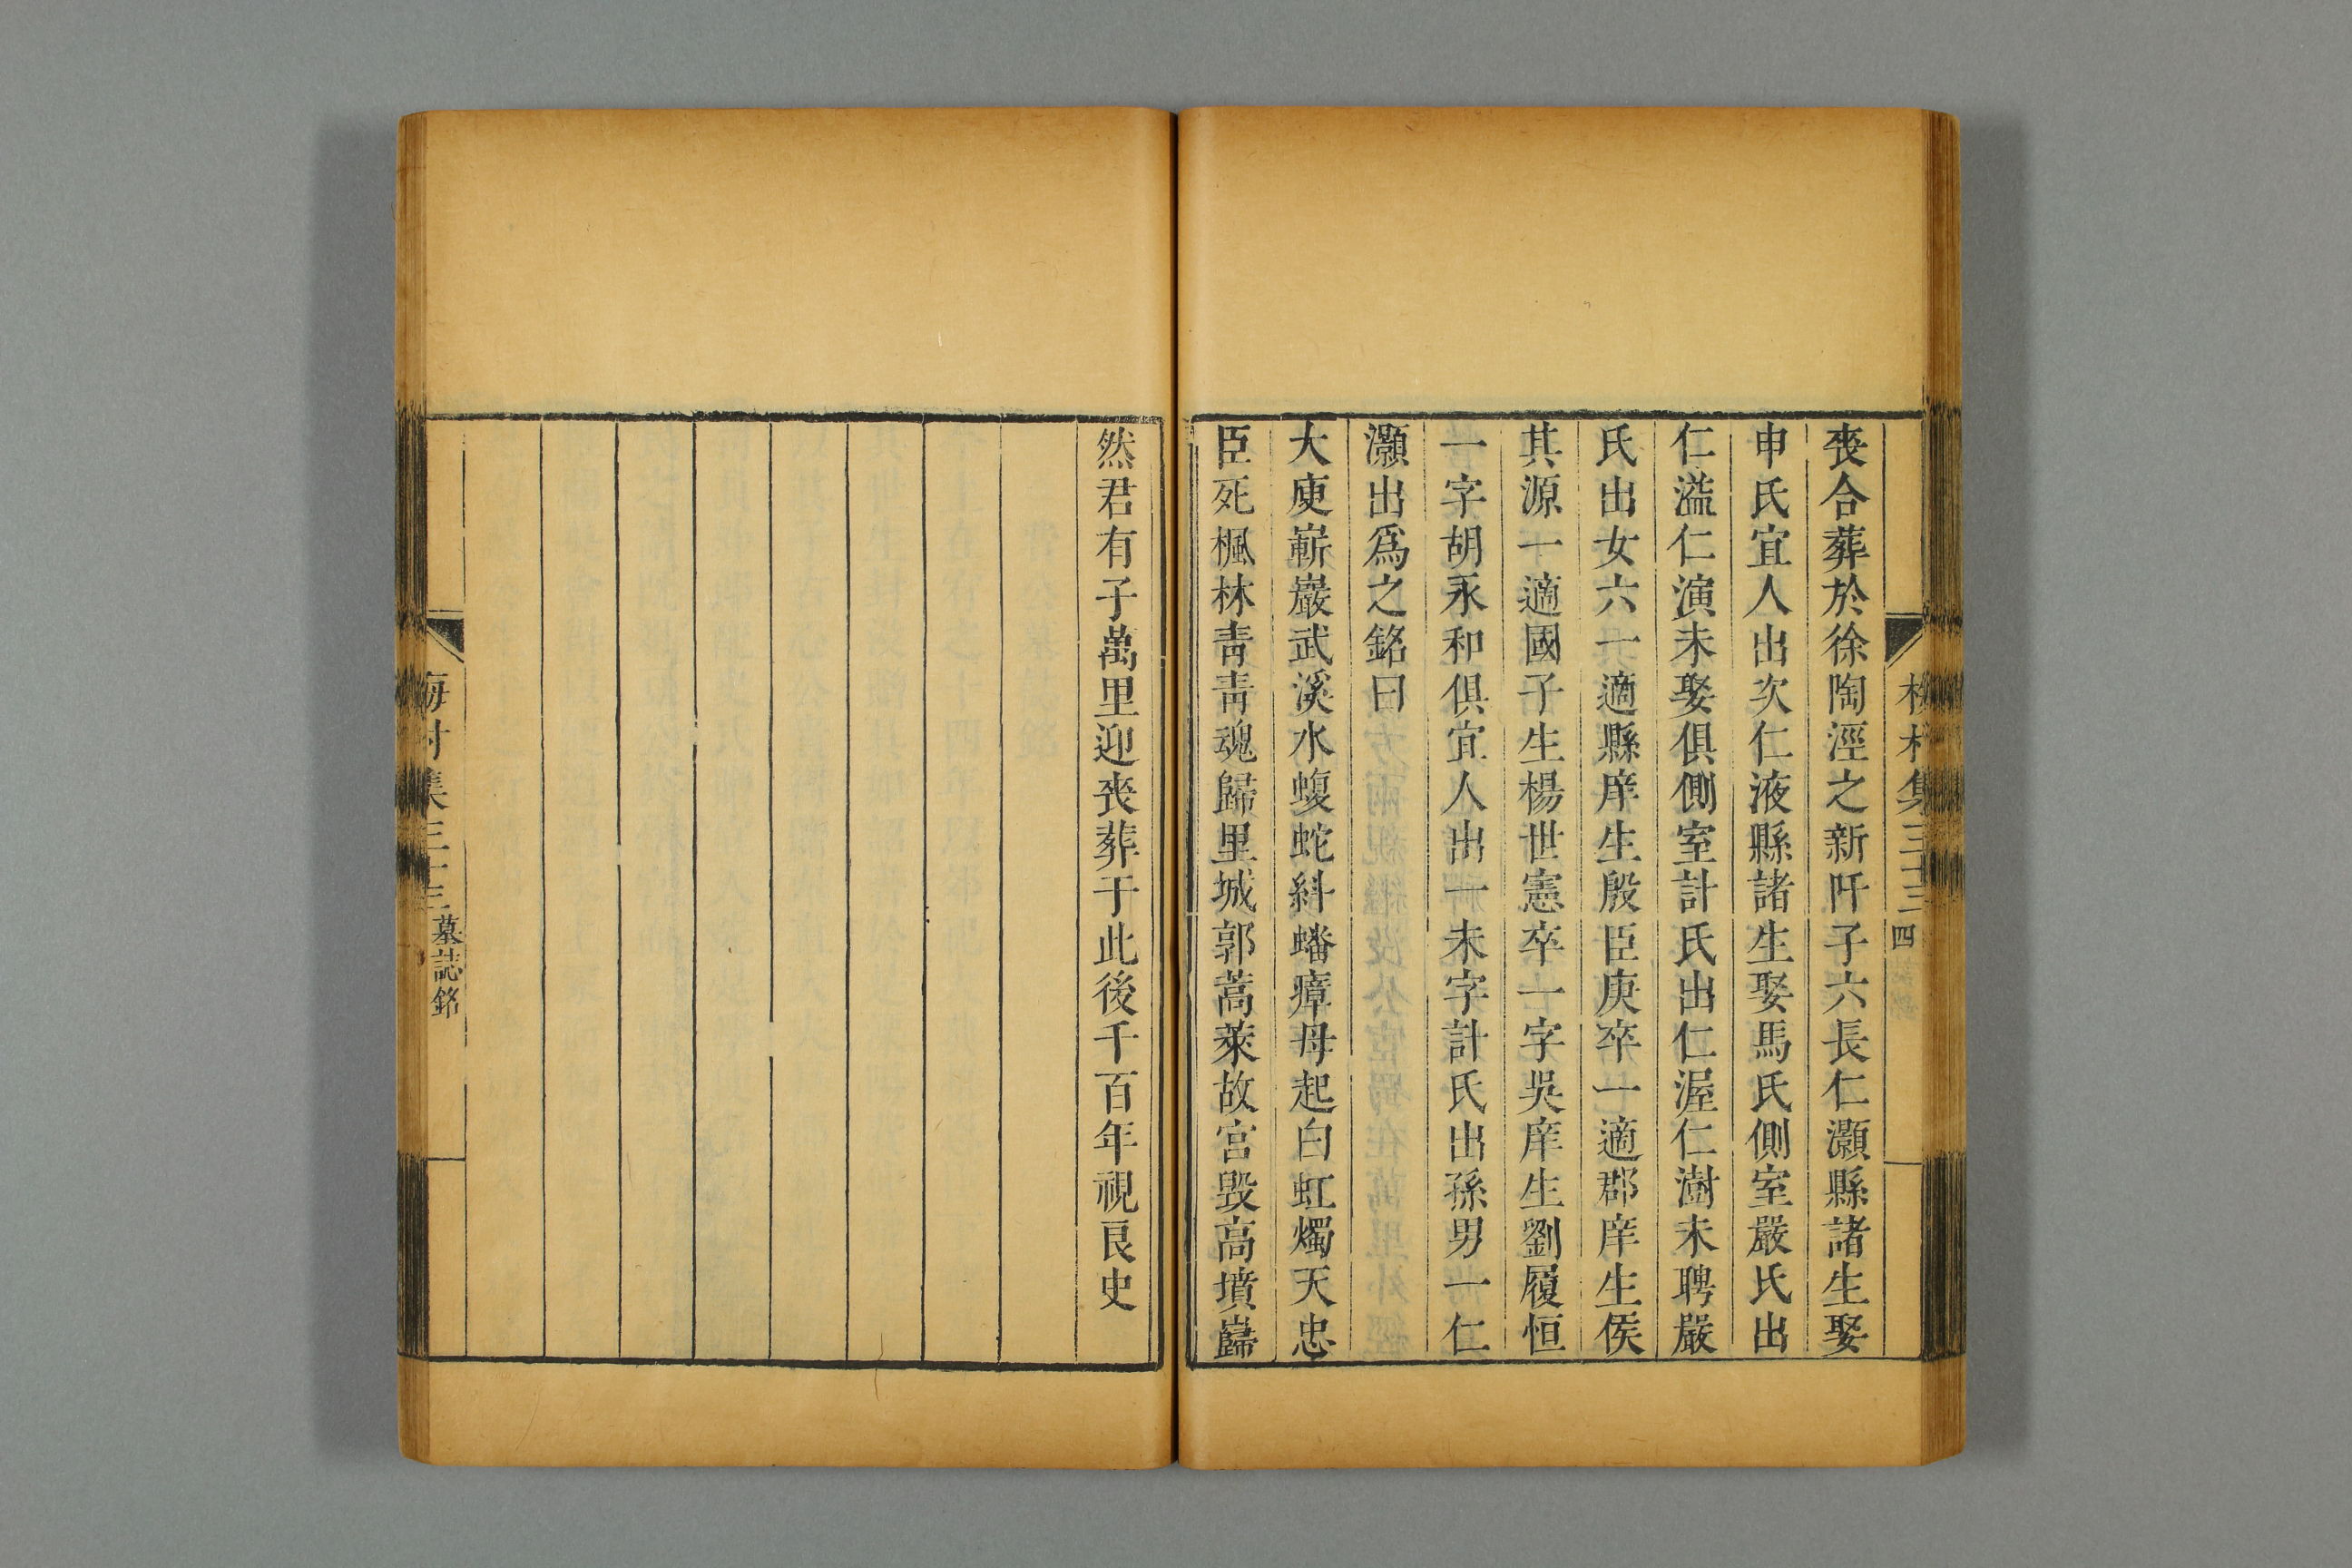 梅村集三十三 四
喪合葬於徐陶涇之新阡子六長仁灝縣諸生娶
申氏宜人出次仁液縣諸生娶馬氏側室嚴氏出
仁溢仁演未娶俱側室計氏出仁渥仁澍未聘嚴
氏出女六一適縣庠生殷臣庚卒一適郡庠生侯
其源一適國子生楊世憲卒一字吳庠生劉履恒
一字胡永和俱宜人出一未字計氏出孫男一仁
灝出爲之銘曰
大庾嶄巖武溪水蝮蛇糾蟠瘴母起白虹燭天忠
臣死楓林青青魂歸里城郭蒿萊故宮毀高墳巋
然君有子萬里迎喪葬于此後千百年視良史
梅村集三十三 墓誌銘